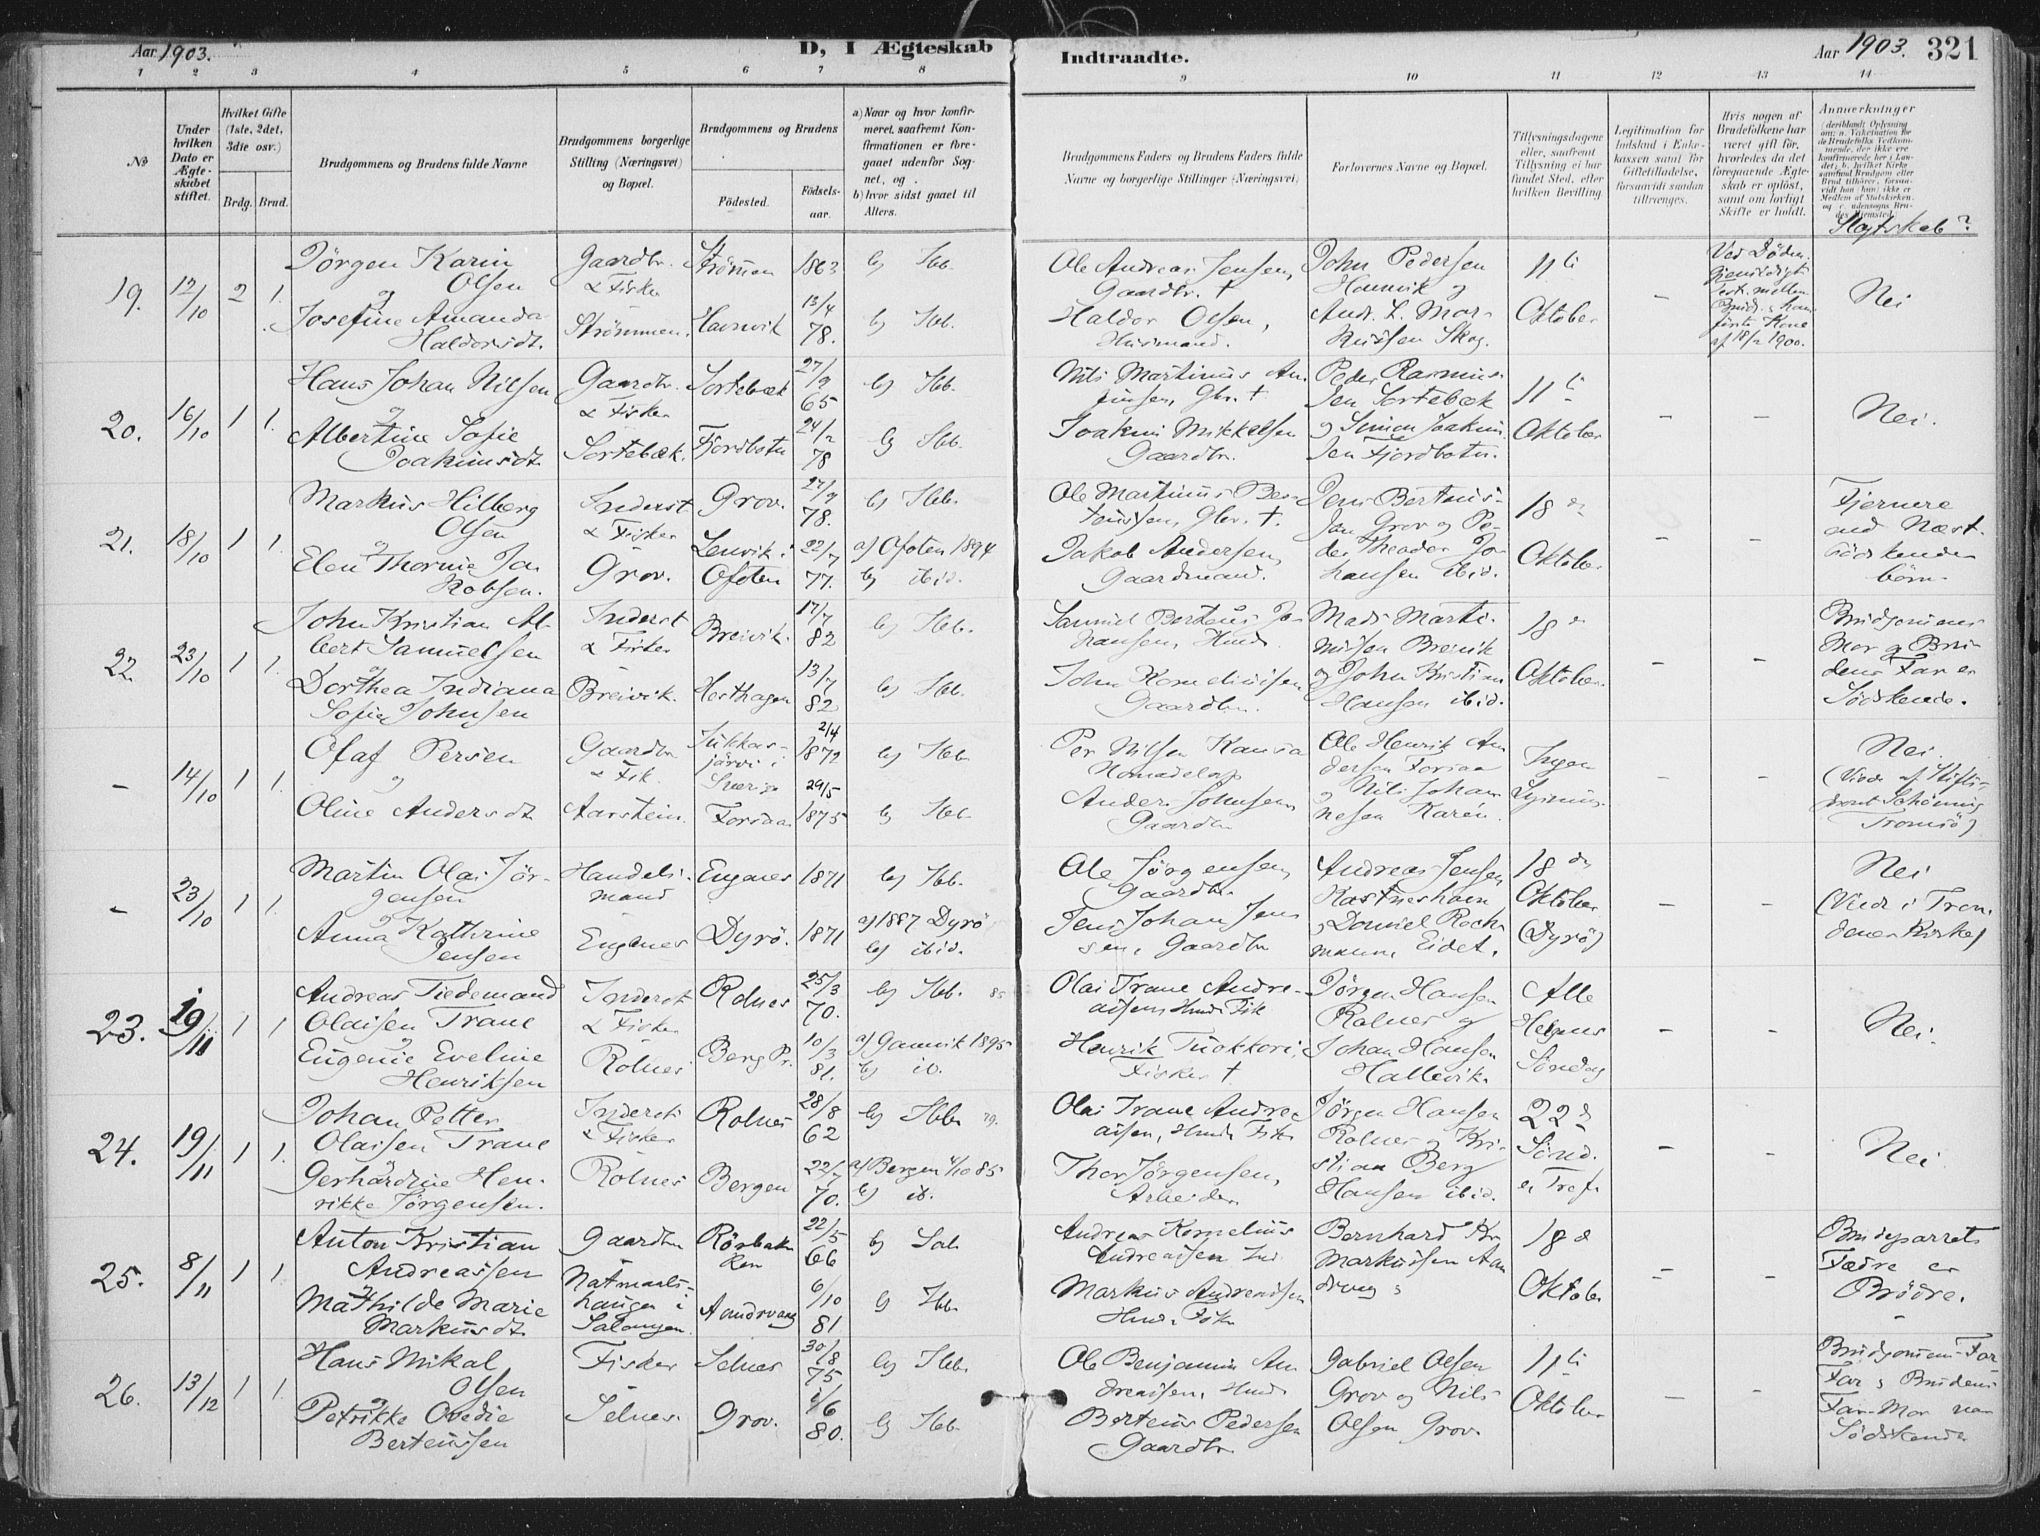 Aar 1903.
D, I Ægteskab
Indtraadte.
Aar 1903.
321
1 2 3 4 5 6 7 8
9 10 11 12 13 14
No
Under hvilken Dato er Ægteskabet stiftet.
Hvilket Gifte (1ste, 2det, 3die osv.)
Brdg.
Brud.
Brudgommens og Brudens fulde Navne
Brudgommens borgerlige Stilling (Næringsvei) og Bopæl.
Brudgommens og Brudens
Födested.
Födselsaar.
a) Naar og hvor konfirmeret, saafremt Konfirmationen er foregaaet udenfor Sognet, og
b) hvor sidst gaaet til Alters.
Brudgommens Faders og Brudens Faders fulde Navne og borgerlige Stillinger (Næringsvei)
Forlovernes Navne og Bopæl.
Tillysningsdagene eller, saafremt Tillysning ei har fundet Sted, efter hvilken Bevilling
Legitimation for Indskud i Enkekassen samt for Giftetilladelse, forsaavidt saadan tiltrænges.
Hvis nogen af Brudefolkene har været gift för, hvorledes da det foregaaende Ægteskab er oplöst, samt om lovligt Skifte er holdt.
Anmærkninger
Slegtskab?
19. 12/10 2 1.
Jørgen Karin
Olsen
og
Josefine Amanda
Haldorsdt.
Gaardbr.
& Fisker
Strömmen.
Strömmen 1863
Havnvik 13/4
78.
b) Ibb.
b) Ibb.
Ole Andreas Jensen,
Gaardbr. †
Haldor Olsen,
Husmand.
John Pedersen
Havnvik og
And. L. Mar-
kussen Skog.
11te
Oktober
-
Ved Döden.
første Kone
af 18/2 1900.
Nei
20. 16/10 1 1.
Hans Johan Nilsen
og
Albertine Sofie
Joakimsdt.
Gaardbr.
& Fisker
Sortebæk.
Sortebæk 27/9
65
Fjordbotn 24/2
78
b) Ibb.
b) Ibb.
Nils Martinus An-
Gbr. †
Joakim Mikkelsen
Gaardbr.
Peder Rasmus-
sen Sortebæk
og Simon Joakim-
sen Fjordbotn.
11te
Oktober
- -
Nei.
21. 18/10 1 1.
Markus Hilberg
Olsen
og
Elen Thornie Ja-
kobsen.
Inderst
& Fisker
Grov.
Grov. 27/9
78.
Lenvik i
Ofoten 22/7
77.
b) Ibb.
a) Ofoten 1894
b) ibid.
Ole Martinus Ber-
Gbr. †.
Jakob Andersen,
Gaardmand.
Jens Berteus-
sen Grov og Pe-
der Theodor Jo-
hansen ibid.
18de
Oktober
- -
Fjernere
end Næst-
södskende-
börn.
22. 23/10 1 1.
John Kristian Al-
bert Samuelsen
og
Dorthea Indiana
Sofie Johnsen
Inderst
& Fisker
Breivik.
Breivik. 17/7
82
Hesthagen 13/7
82
b) Ibb.
b) Ibb.
Samuel Berteus Jo-
hansen, Husm.
John Kornelinssen
Gaardbr.
Mads Marti-
nussen Breivik
og John Kristian
Hansen ibid.
18de
Oktober.
- -
Brudgommens
Mor og Bru-
dens Far er
Södskende.
- 14/10 1 1.
Olaf Persen
og
Oline Andersdt.
Gaardbr
& Fisk.
Aarstein.
Jukkas-
järvi i
Sverige 2/4
1872
Forsaa 29/5
1875
b) Ibb.
b) Ibb.
Per Nilsen
Nomadelap
Anders Johnsen,
Gaardbr
Ole Henrik An-
dersen Forsaa
og Nils Johan-
nesen
Ingen
Lysning.
- -
Nei.
(Viede af Stifts-
provst Schönning
Tromsö)
- 23/10 1 1.
Martin Olai Jör-
gensen
og
Anna Kathrine
Jensen
Handels-
mand
Engenes
Engenes 1871
Dyrö. 1871
b) Ibb.
a) 1887 Dyrö
b) ibid.
Ole Jörgensen,
Gaardbr.
Jens Johan Jen-
sen, Gaardbr
Andreas Jensen
og Daniel Roch-
mann, Eidet.
18de
Oktober
(Dyrö)
- -
Nei
(Viede i Tron-
denes Kirke)
23. 19/11 1 1
Andreas Tiedemand
Olaisen Trane
og
Eugenie Eveline
Henriksen
Inderst
& Fisker
Rolnes
Rolnes 25/3
70.
Berg Pr. 10/3
81.
b) Ibb. 85
a) Gamvik 1895
b) ib.
Olai Trane Andre-
asen, Husm. Fisk
Henrik Tuokkori,
Fisker †
Jörgen Hansen
Rolnes og
Johan Hansen
Hallevik.
Alle
Helgens
Söndag
- -
Nei.
24. 19/11 1 1.
Johan Petter
Olaisen Trane
Gerhardine Hen-
rikke Jörgensen.
Inderst
& Fisker
Rolnes
Rolnes 28/8
62
Bergen 22/7
70.
b) Ibb. 79.
a) Bergen 4/10 85
b) ib.
Olai Trane Andre-
asen, Husm. Fisk.
Thor Jörgensen,
Arbeider
Jörgen Hansen
Rolnes og Kri-
stian Berg
Hansen ibid.
22de
Sönd.
e. Tref.
- -
Nei
25. 8/11 1 1
Anton Kristian
Andreassen
og
Mathilde Marie
Markusdt.
Gaardbr
Natmaals-
haugen i
Salangen.
Rösbak-
ken 22/5
66
Aandrvang 6/10
81
b) Sal.
b) Ibb.
Andreas Kornelius
Andreassen Ind.
Markus Andreassen
Husm. Fisk.
Bernhard Kr.
Markussen Aan-
drvang
18de
Oktober
- -
Brudeparrets
Fædre er
Brödre.
26. 13/12 1 1.
Hans Mikal
Olsen
og
Petrikke Ovedie
Berteussen
Fisker
Selnes.
Selnes 30/8
75
Grov. /6
80.
b) Ibb.
b) Ibb.
Ole Benjamin An-
dreassen, Husm.
Berteus Pedersen
Gaardbr.
Gabriel Olsen
Grov og Nils
Olsen Grov.
11te
Oktober
- -
Brudgommens Far-
Far og Brudens
Far-Mor var
Södskende